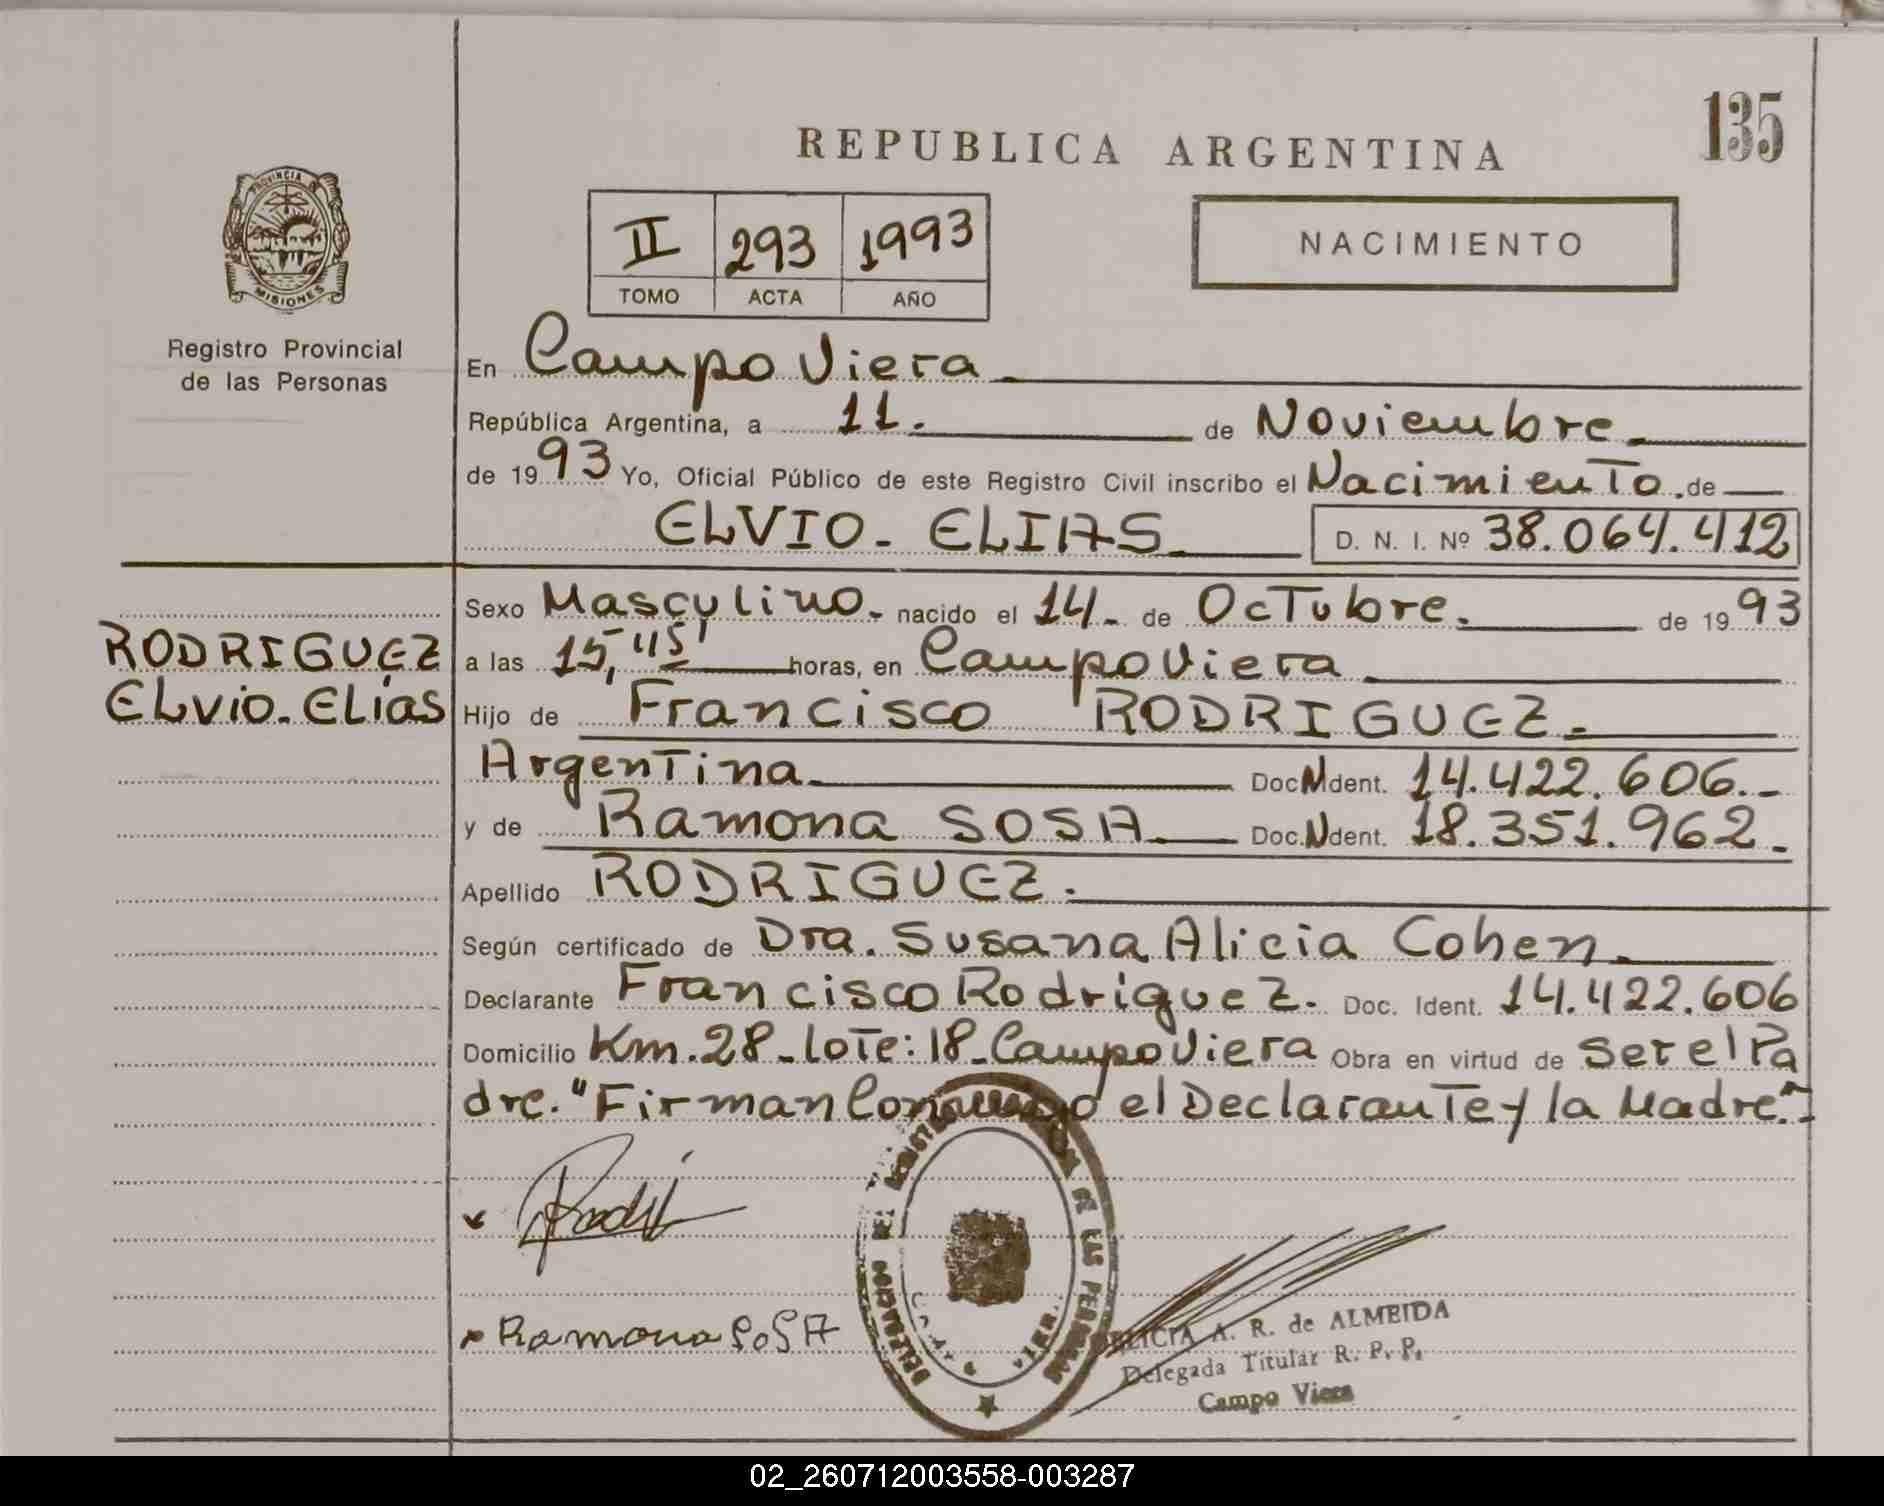 135
REPUBLICA ARGENTINA
PROVINCIA DE
MISIONES
Registro Provincial
de las Personas
II 293 1993
TOMO ACTA AÑO
NACIMIENTO
En Campo Viera
República Argentina, a 11. de Noviembre
de 1993 Yo, Oficial Público de este Registro Civil inscribo el Nacimiento de
ELVIO - ELIAS D. N. I. Nº 38.064.412
RODRIGUEZ
ELvio - ELías
Sexo Masculino - nacido el 14 - de Octubre. de 1993
a las 15,45' horas, en Campo Viera
Hijo de Francisco RODRIGUEZ
Argentina Doc. Ident. 14.422.606.-
y de Ramona SOSA Doc. Ident. 18.351.962.-
Apellido RODRIGUEZ.
Según certificado de Dra. Susana Alicia Cohen
Declarante Francisco Rodriguez. Doc. Ident. 14.422.606
Domicilio Km. 28 - lote: 18 - Campo Viera Obra en virtud de ser el Pa
dre. "Firman Conmigo el Declarante y la Madre".-
Ramona SOSA
A. R. de ALMEIDA
Delegada Titular R. P. P.
Campo Viera
DE LAS PERSONAS
02_260712003558-003287